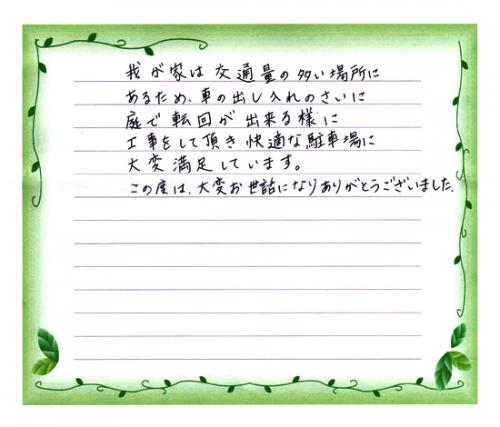 我が家は交通量の多い場所に
あるため、車の出し入れのさいに
庭で転回が出来る様に
工事をして頂き快適な駐車場に
大変満足しています。
この度は、大変お世話になりありがとうございました。